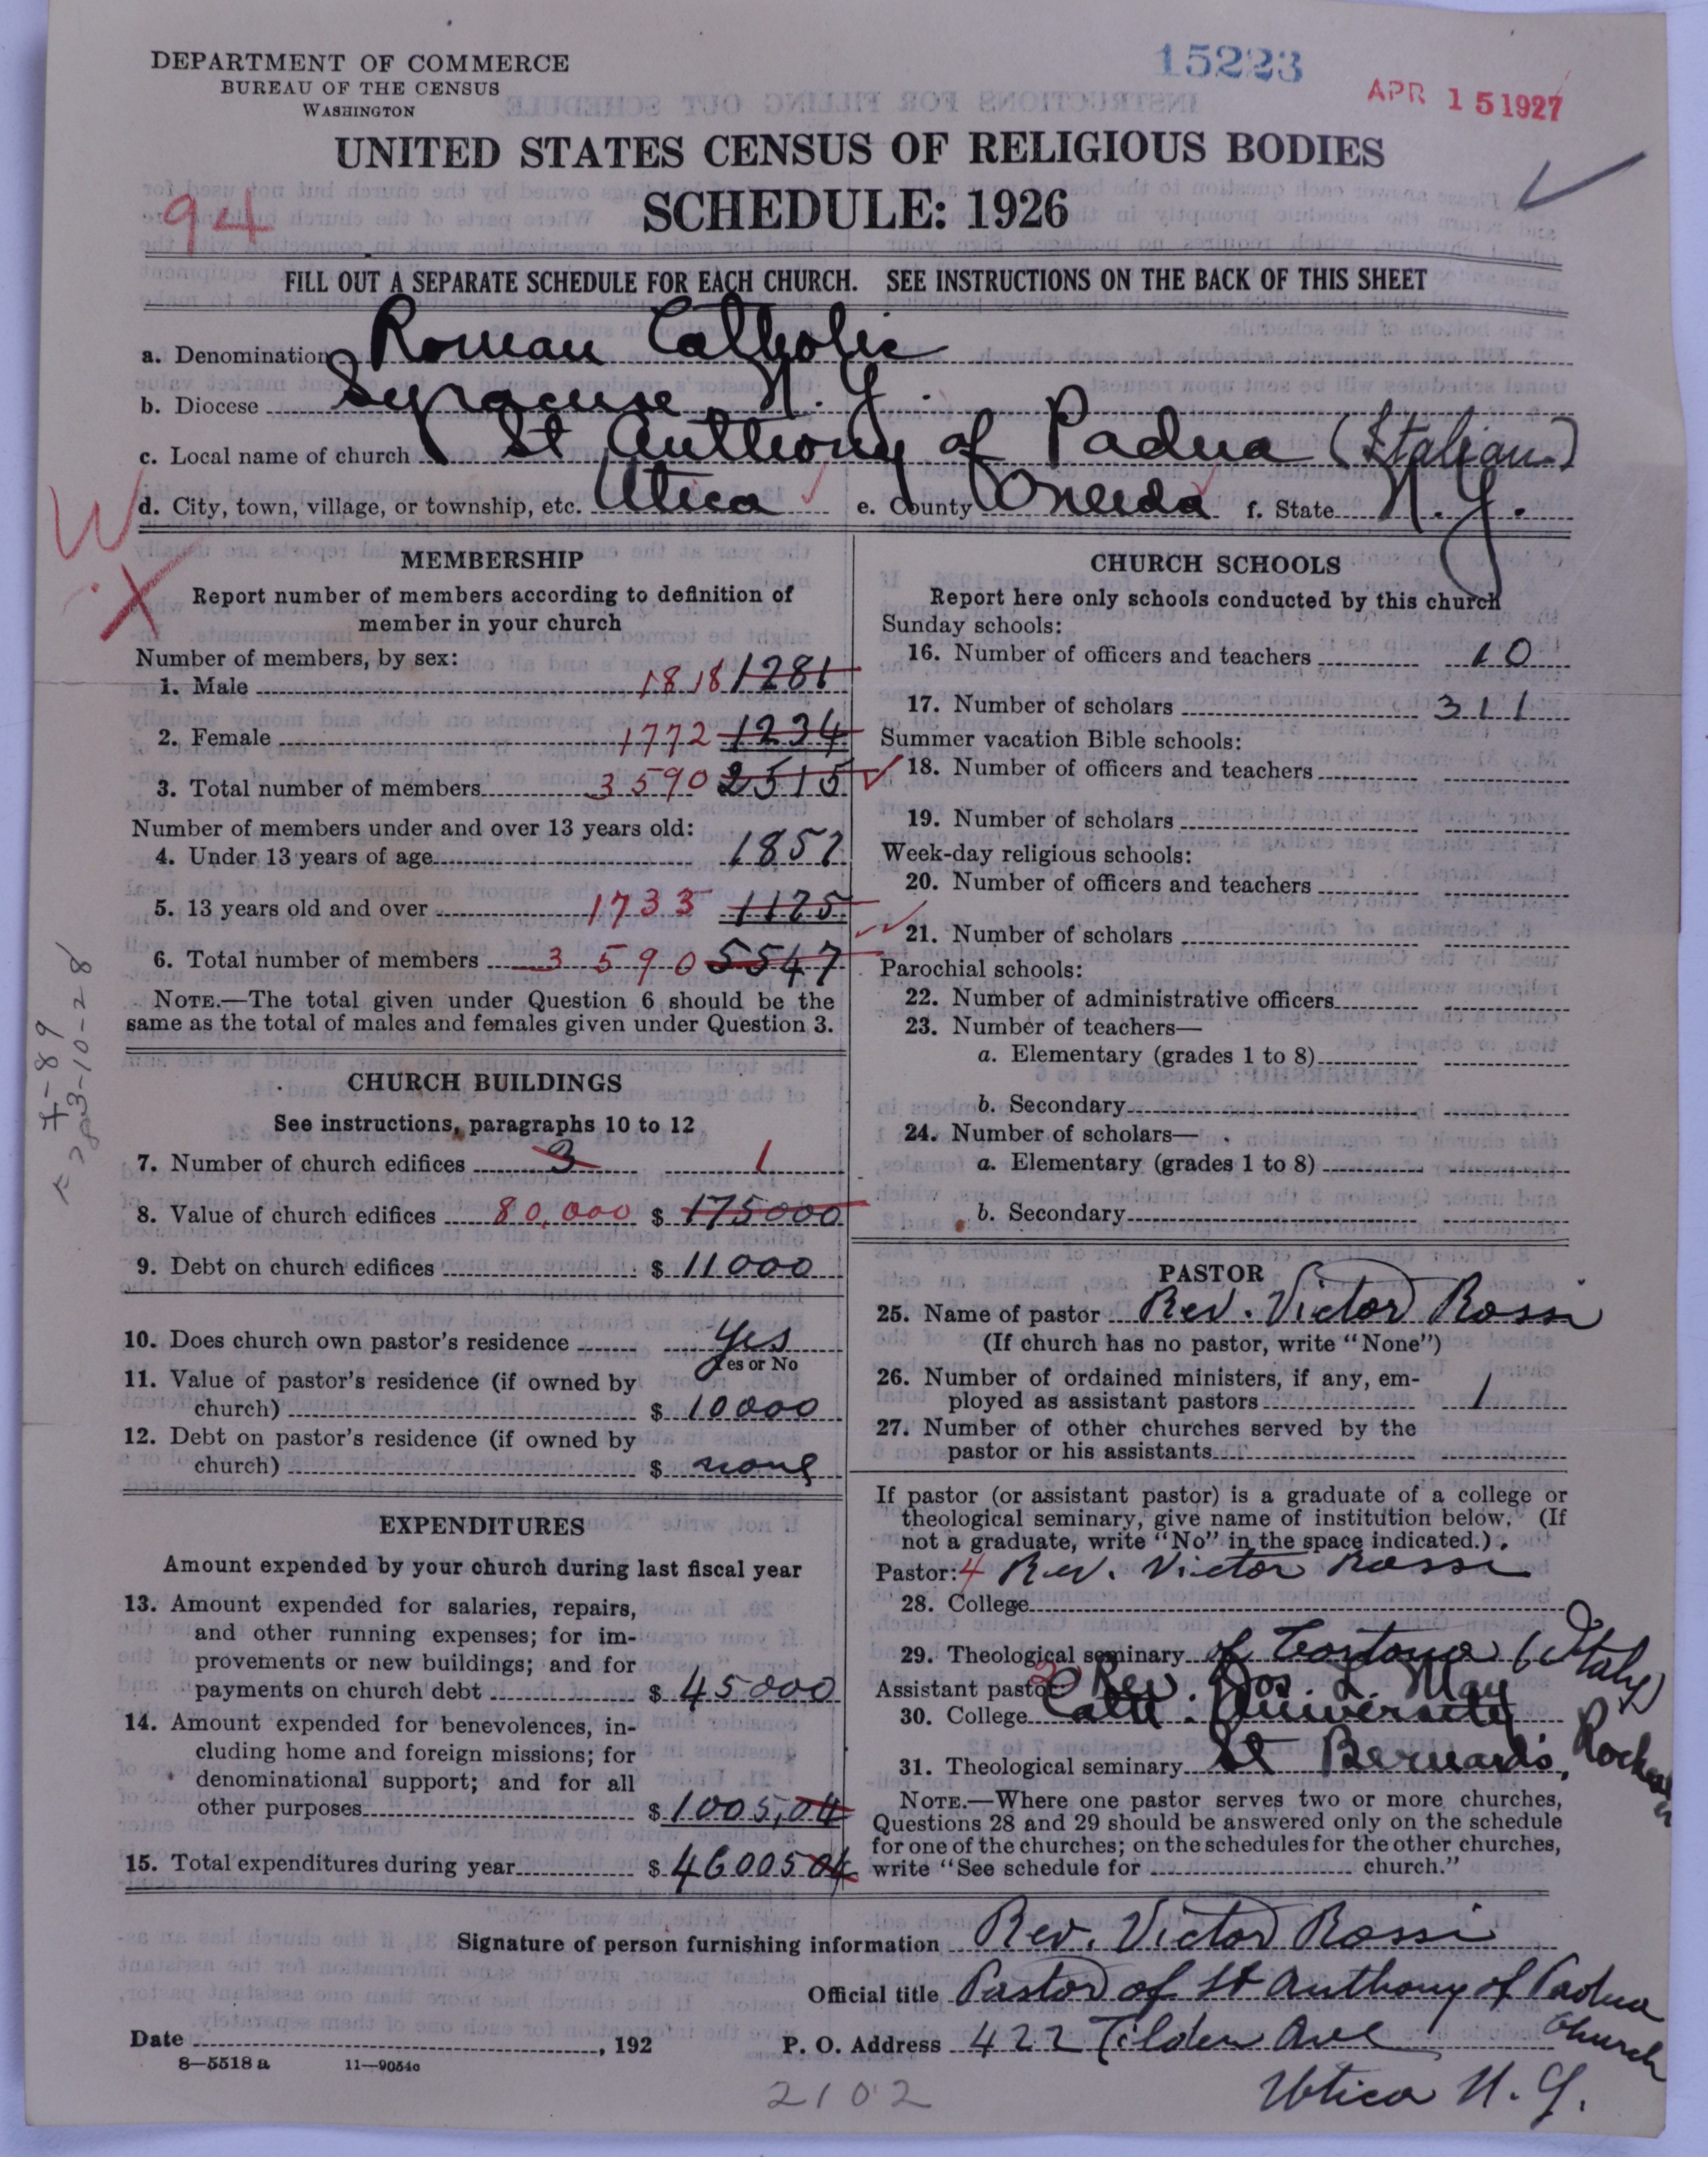 DEPARTMENT OF COMMERCE
BUREAU OF THE CENSUS
WASHINGTON
15223
APR 15 1927
UNITED STATES CENSUS OF RELIGIOUS BODIES
SCHEDULE: 1926
94
FILL OUT A SEPARATE SCHEDULE FOR EACH CHURCH. SEE INSTRUCTIONS ON THE BACK OF THIS SHEET
a. Denomination Roman Catholic
b. Diocese Syracuse N.Y.
c. Local name of church St Anthony of Padua (Italian)
d. City, town, village, or township, etc. Utica e. County Oneida f. State N.Y.
W
X
MEMBERSHIP
Report number of members according to definition of
member in your church
Number of members, by sex:
1. Male 1818 1281
2. Female 1772 1234
3. Total number of members 3590 2515
Number of members under and over 13 years old:
4. Under 13 years of age 1857
5. 13 years old and over 1733 1125
6. Total number of members 3590 5547
NOTE.—The total given under Question 6 should be the
same as the total of males and females given under Question 3.
CHURCH BUILDINGS
See instructions, paragraphs 10 to 12
7. Number of church edifices 3 1
8. Value of church edifices 80,000 $ 175000
9. Debt on church edifices $ 11000
10. Does church own pastor's residence Yes
Yes or No
11. Value of pastor's residence (if owned by
church) $ 10000
12. Debt on pastor's residence (if owned by
church) $ none
EXPENDITURES
Amount expended by your church during last fiscal year
13. Amount expended for salaries, repairs,
and other running expenses; for im-
provements or new buildings; and for
payments on church debt $ 45000
14. Amount expended for benevolences, in-
cluding home and foreign missions; for
denominational support; and for all
other purposes $ 1005,04
15. Total expenditures during year $ 46005 04
CHURCH SCHOOLS
Report here only schools conducted by this church
Sunday schools:
16. Number of officers and teachers 10
17. Number of scholars 311
Summer vacation Bible schools:
18. Number of officers and teachers
19. Number of scholars
Week-day religious schools:
20. Number of officers and teachers
21. Number of scholars
Parochial schools:
22. Number of administrative officers
23. Number of teachers—
a. Elementary (grades 1 to 8)
b. Secondary
24. Number of scholars—
a. Elementary (grades 1 to 8)
b. Secondary
PASTOR
25. Name of pastor Rev. Victor Rossi
(If church has no pastor, write "None")
26. Number of ordained ministers, if any, em-
ployed as assistant pastors 1
27. Number of other churches served by the
pastor or his assistants
If pastor (or assistant pastor) is a graduate of a college or
theological seminary, give name of institution below. (If
not a graduate, write "No" in the space indicated.)
Pastor: 4 Rev. Victor Rossi
28. College
29. Theological seminary of Cortona (Italy)
Assistant pastor: Rev. Jos. L. May
30. College Cath. University
31. Theological seminary St Bernard's, Rochester
NOTE.—Where one pastor serves two or more churches,
Questions 28 and 29 should be answered only on the schedule
for one of the churches; on the schedules for the other churches,
write "See schedule for church."
Signature of person furnishing information Rev. Victor Rossi
Official title Pastor of St Anthony of Padua
Church
Date , 192 P. O. Address 422 Tilden Ave
Utica N.Y.
8—5518 a 11—9054c
2102